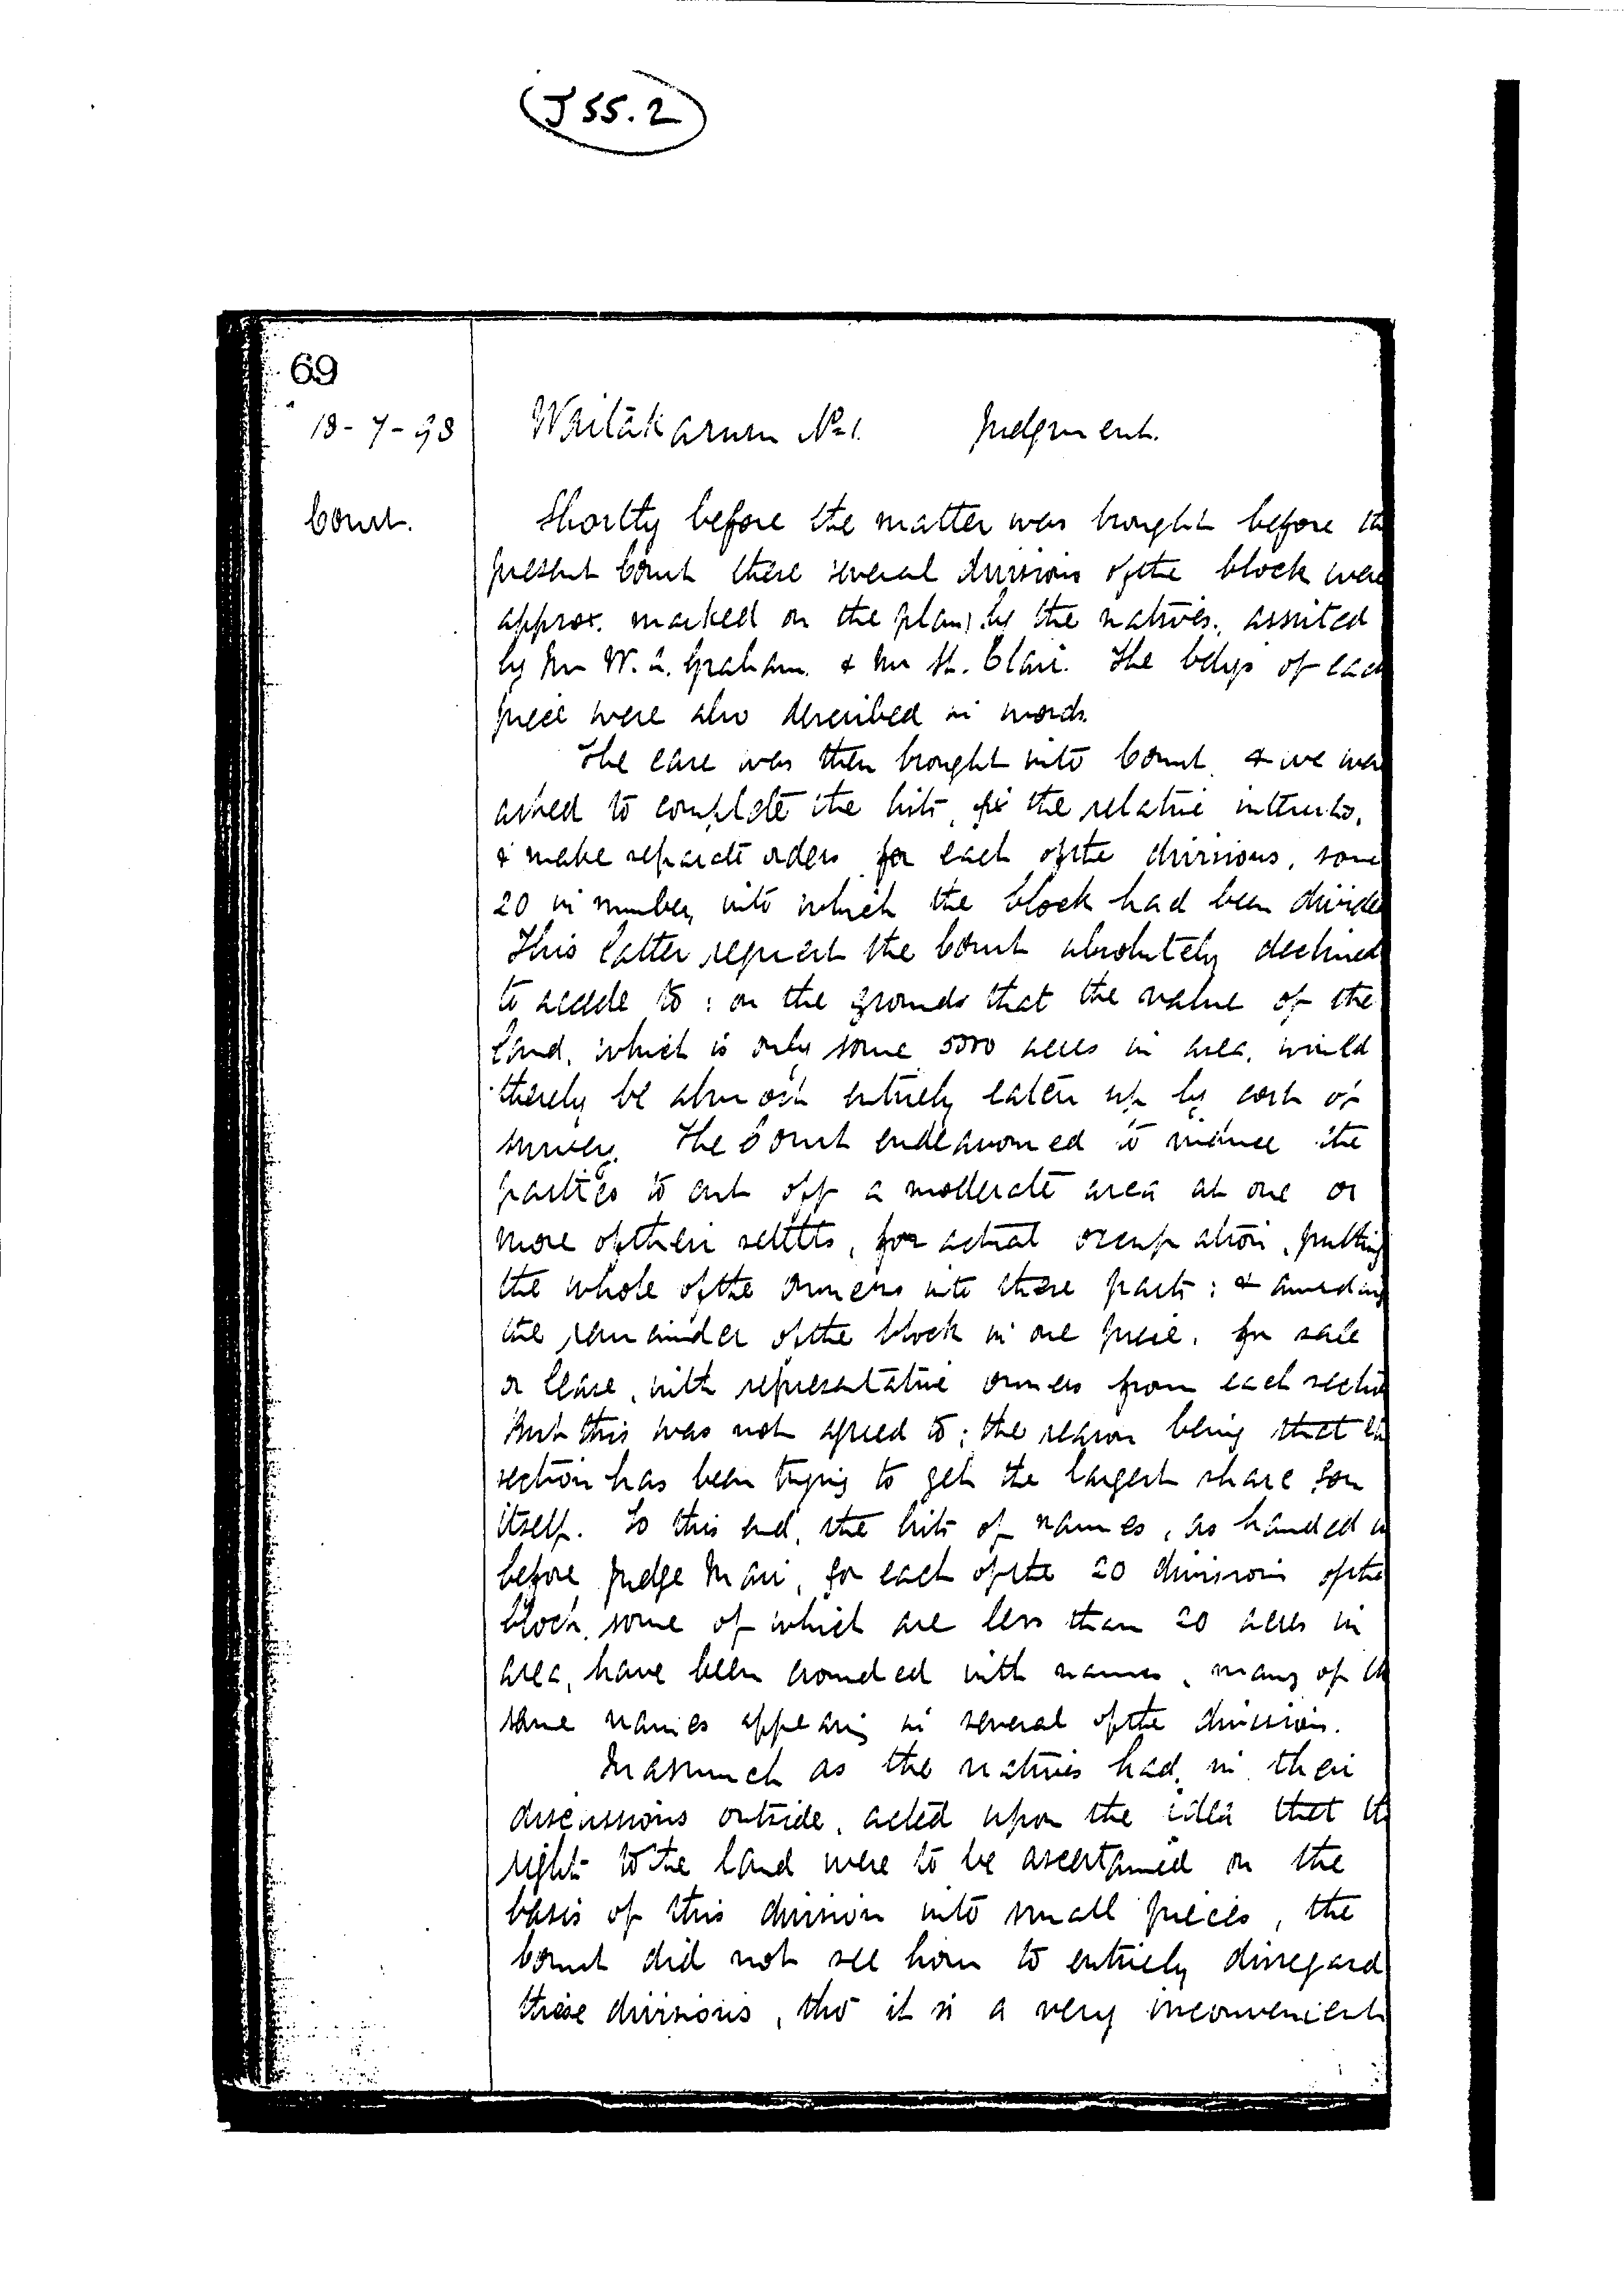 J 55.2
69
18-7-98
Waitakaruru No 1. Judgment.
Court.
Shortly before the matter was brought before th
present Court these several divisions of the block were
approx. marked on the plan, by the natives, assisted
by Mr W. A. Graham & Mr St. Clair. The bdys of each
piece were also described in words.
The case was then brought into Court, & we wer
asked to complete the lists, fix the relative interests,
& make separate orders for each of the divisions, some
20 in number, into which the block had been divided
This latter request the Court absolutely declined
to accede to: on the grounds that the value of the
land, which is only some 5000 acres in area, would
thereby be almost entirely eaten up by cost of
survey. The Court endeavoured to induce the
parties to cut off a moderate area at one or
more of their settlts, for actual occupation, putting
the whole of the owners into these parts: & awarding
the remainder of the block in one piece, for sale
or lease, with representative owners from each sectio
But this was not agreed to; the reason being that ea
section has been trying to get the largest share for
itself. To this end, the lists of names, as handed in
before Judge Mair, for each of the 20 divisions of the
block, some of which are less than 20 acres in
area, have been crowded with names, many of th
same names appearing in several of the divisions.
Inasmuch as the natives had, in their
discussions outside, acted upon the idea that th
rights to the land were to be ascertained on the
basis of this division into small pieces, the
Court did not see how to entirely disregard
these divisions, tho' it is a very inconvenient